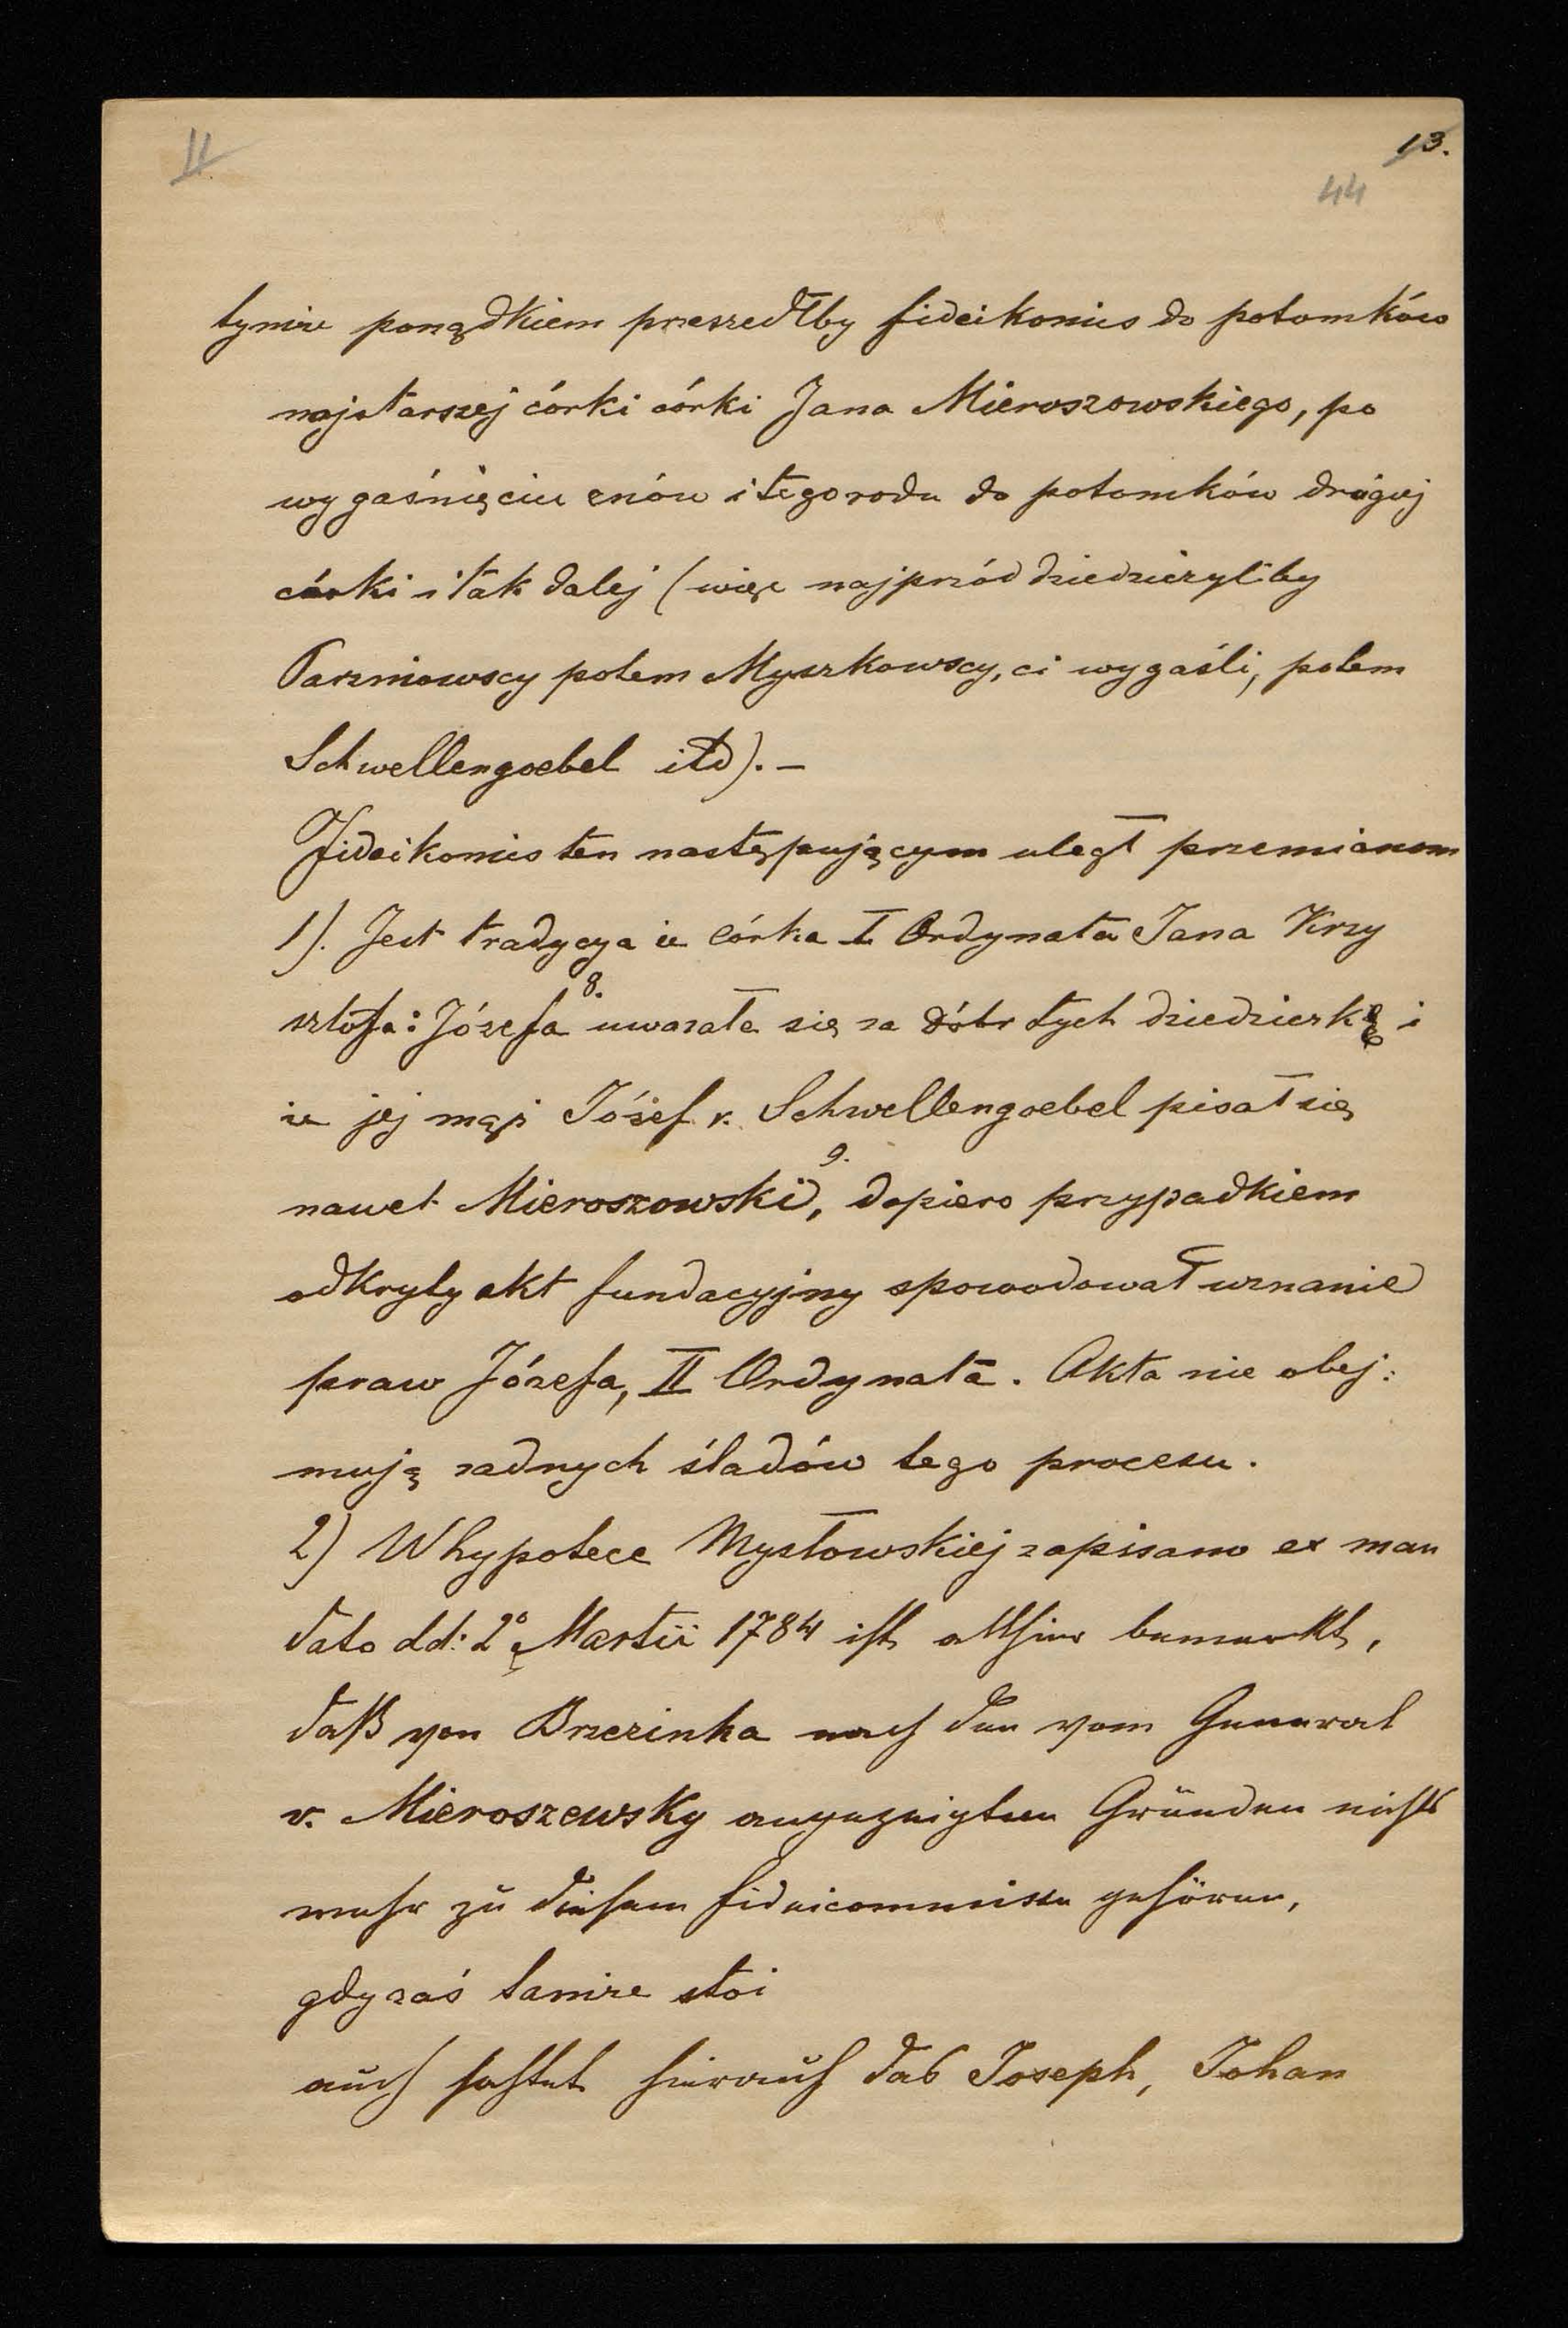 II
13.
44
tymże porządkiem przeszedłby fideikomis do potomków
najstarszej córki córki Jana Mieroszowskiego, po
wygaśnięciu znów i tego rodu do potomków drugiej
córki i tak dalej (więc najprzód dziedziczyliby
potem Myszkowscy, ci wygaśli, potem
Schwellengoebel itd). –
Fideikomis ten następującym uległ przemianom
1). Jest tradycya że córka I Ordynata Jana Krzy
sztofa: Józefa 8. uważała się za dóbr tych dziedziczkę i
że jej mąż Józef v. Schwellengoebel pisał się
nawet Mieroszowski 9., dopiero przypadkiem
odkryty akt fundacyjny spowodował uznanie
praw Józefa, II Ordynata. Akta nie obej:
mują żadnych śladów tego procesu.
2) W hypotece Mysłowskiej zapisano ex man
dato dd: 2º Martii 1784 ist allhier bemerkt,
daß von Brzezinka nach den vom General
v. Mieroszewsky angezeigten Gründen nichts
mehr zu diesem fideicommisse gehören,
gdy zaś tamże stoi
auch haftet hierauf das Joseph, Johan